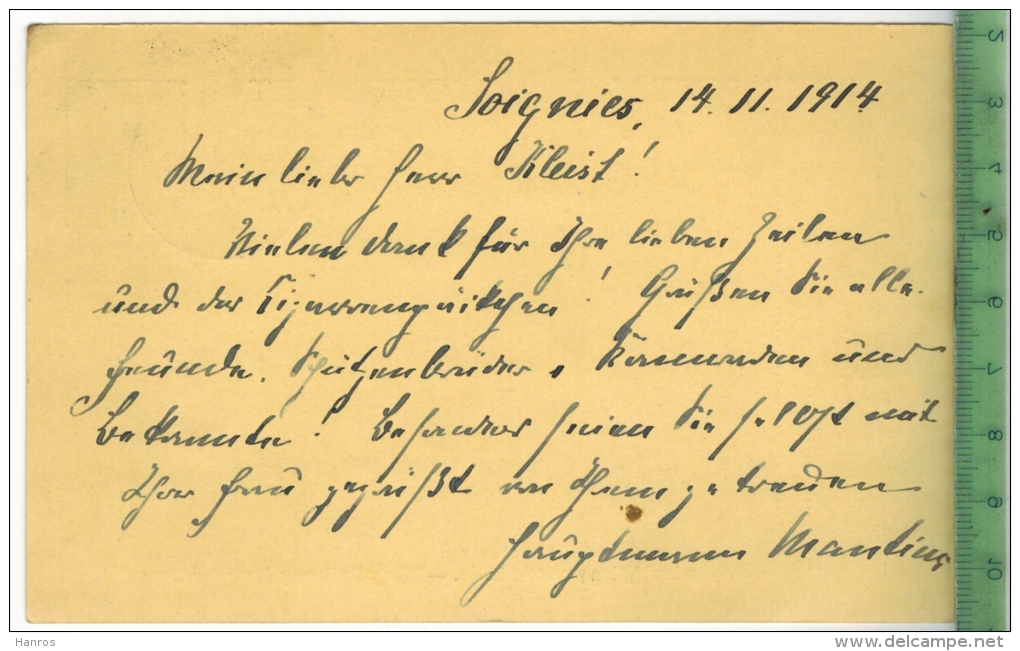 Soignies, 14. 11. 1914
Mein lieber Herr Kleist!
Vielen Dank für Ihre lieben Zeilen
und das Zigarrenpäckchen! Grüßen Sie alle
Freunde, Schützenbrüder, Kameraden und
Bekannte! Besonders seien Sie selbst mit
Ihrer Frau gegrüßt von Ihrem getreuen
Hauptmann Mantius
Hanros
www.delcampe.net